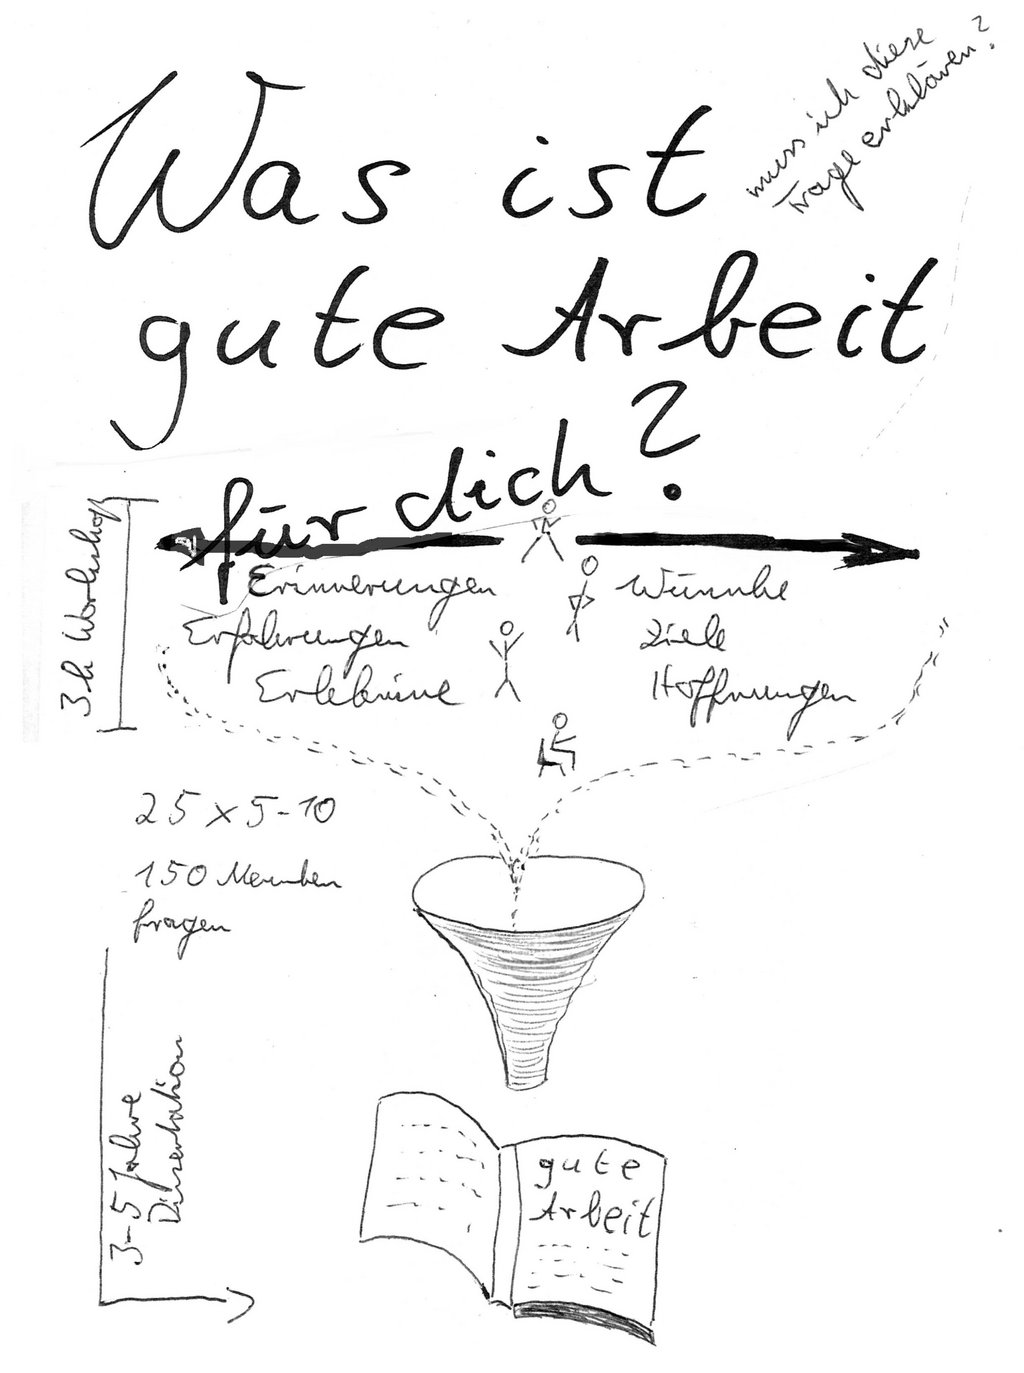 muss ich diese
Frage erklären?
Was ist
gute Arbeit
für dich?
3h Workshop
Erinnerungen
Erfahrungen
Erlebnisse
Wünsche
Ziele
Hoffnungen
25 x 5-10
150 Menschen
fragen
3-5 Jahre
Dissertation
gute
Arbeit